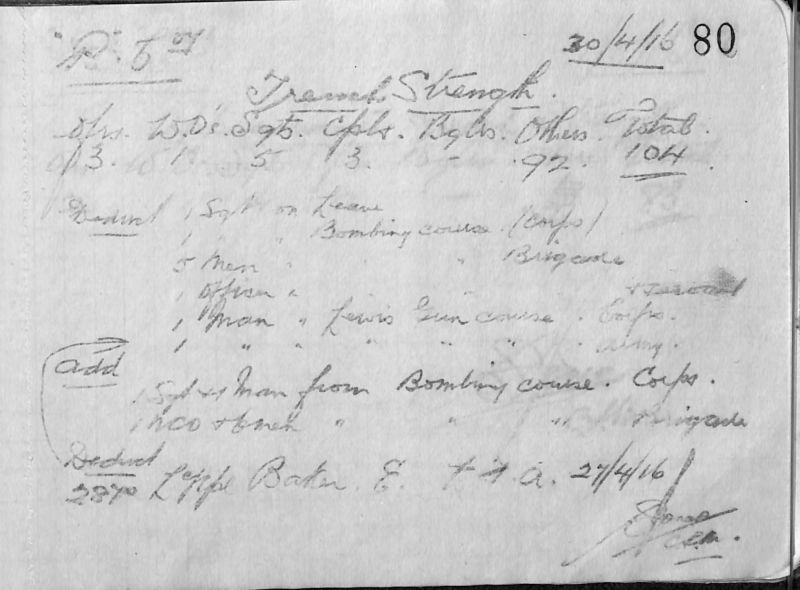 "B" Coy 30/4/16 80
Trench Strength.
Ofrs. W.O's. Sgts. Cpls. Bglrs. Others. Total.
3. 1 5 3. - 92. 104.
Deduct 1 Sgt on Leave
1 " " Bombing course (Corps)
5 Men " " Brigade
1 Officer "
1 Man " Lewis Gun course. Corps.
1 " " " " " Army.
Add
1 Sgt + 1 Man from Bombing course. Corps.
1 NCO + 6 men " " " Brigade
Deduct
L/Cpl Baker E. 27/4/16
C.S.M.